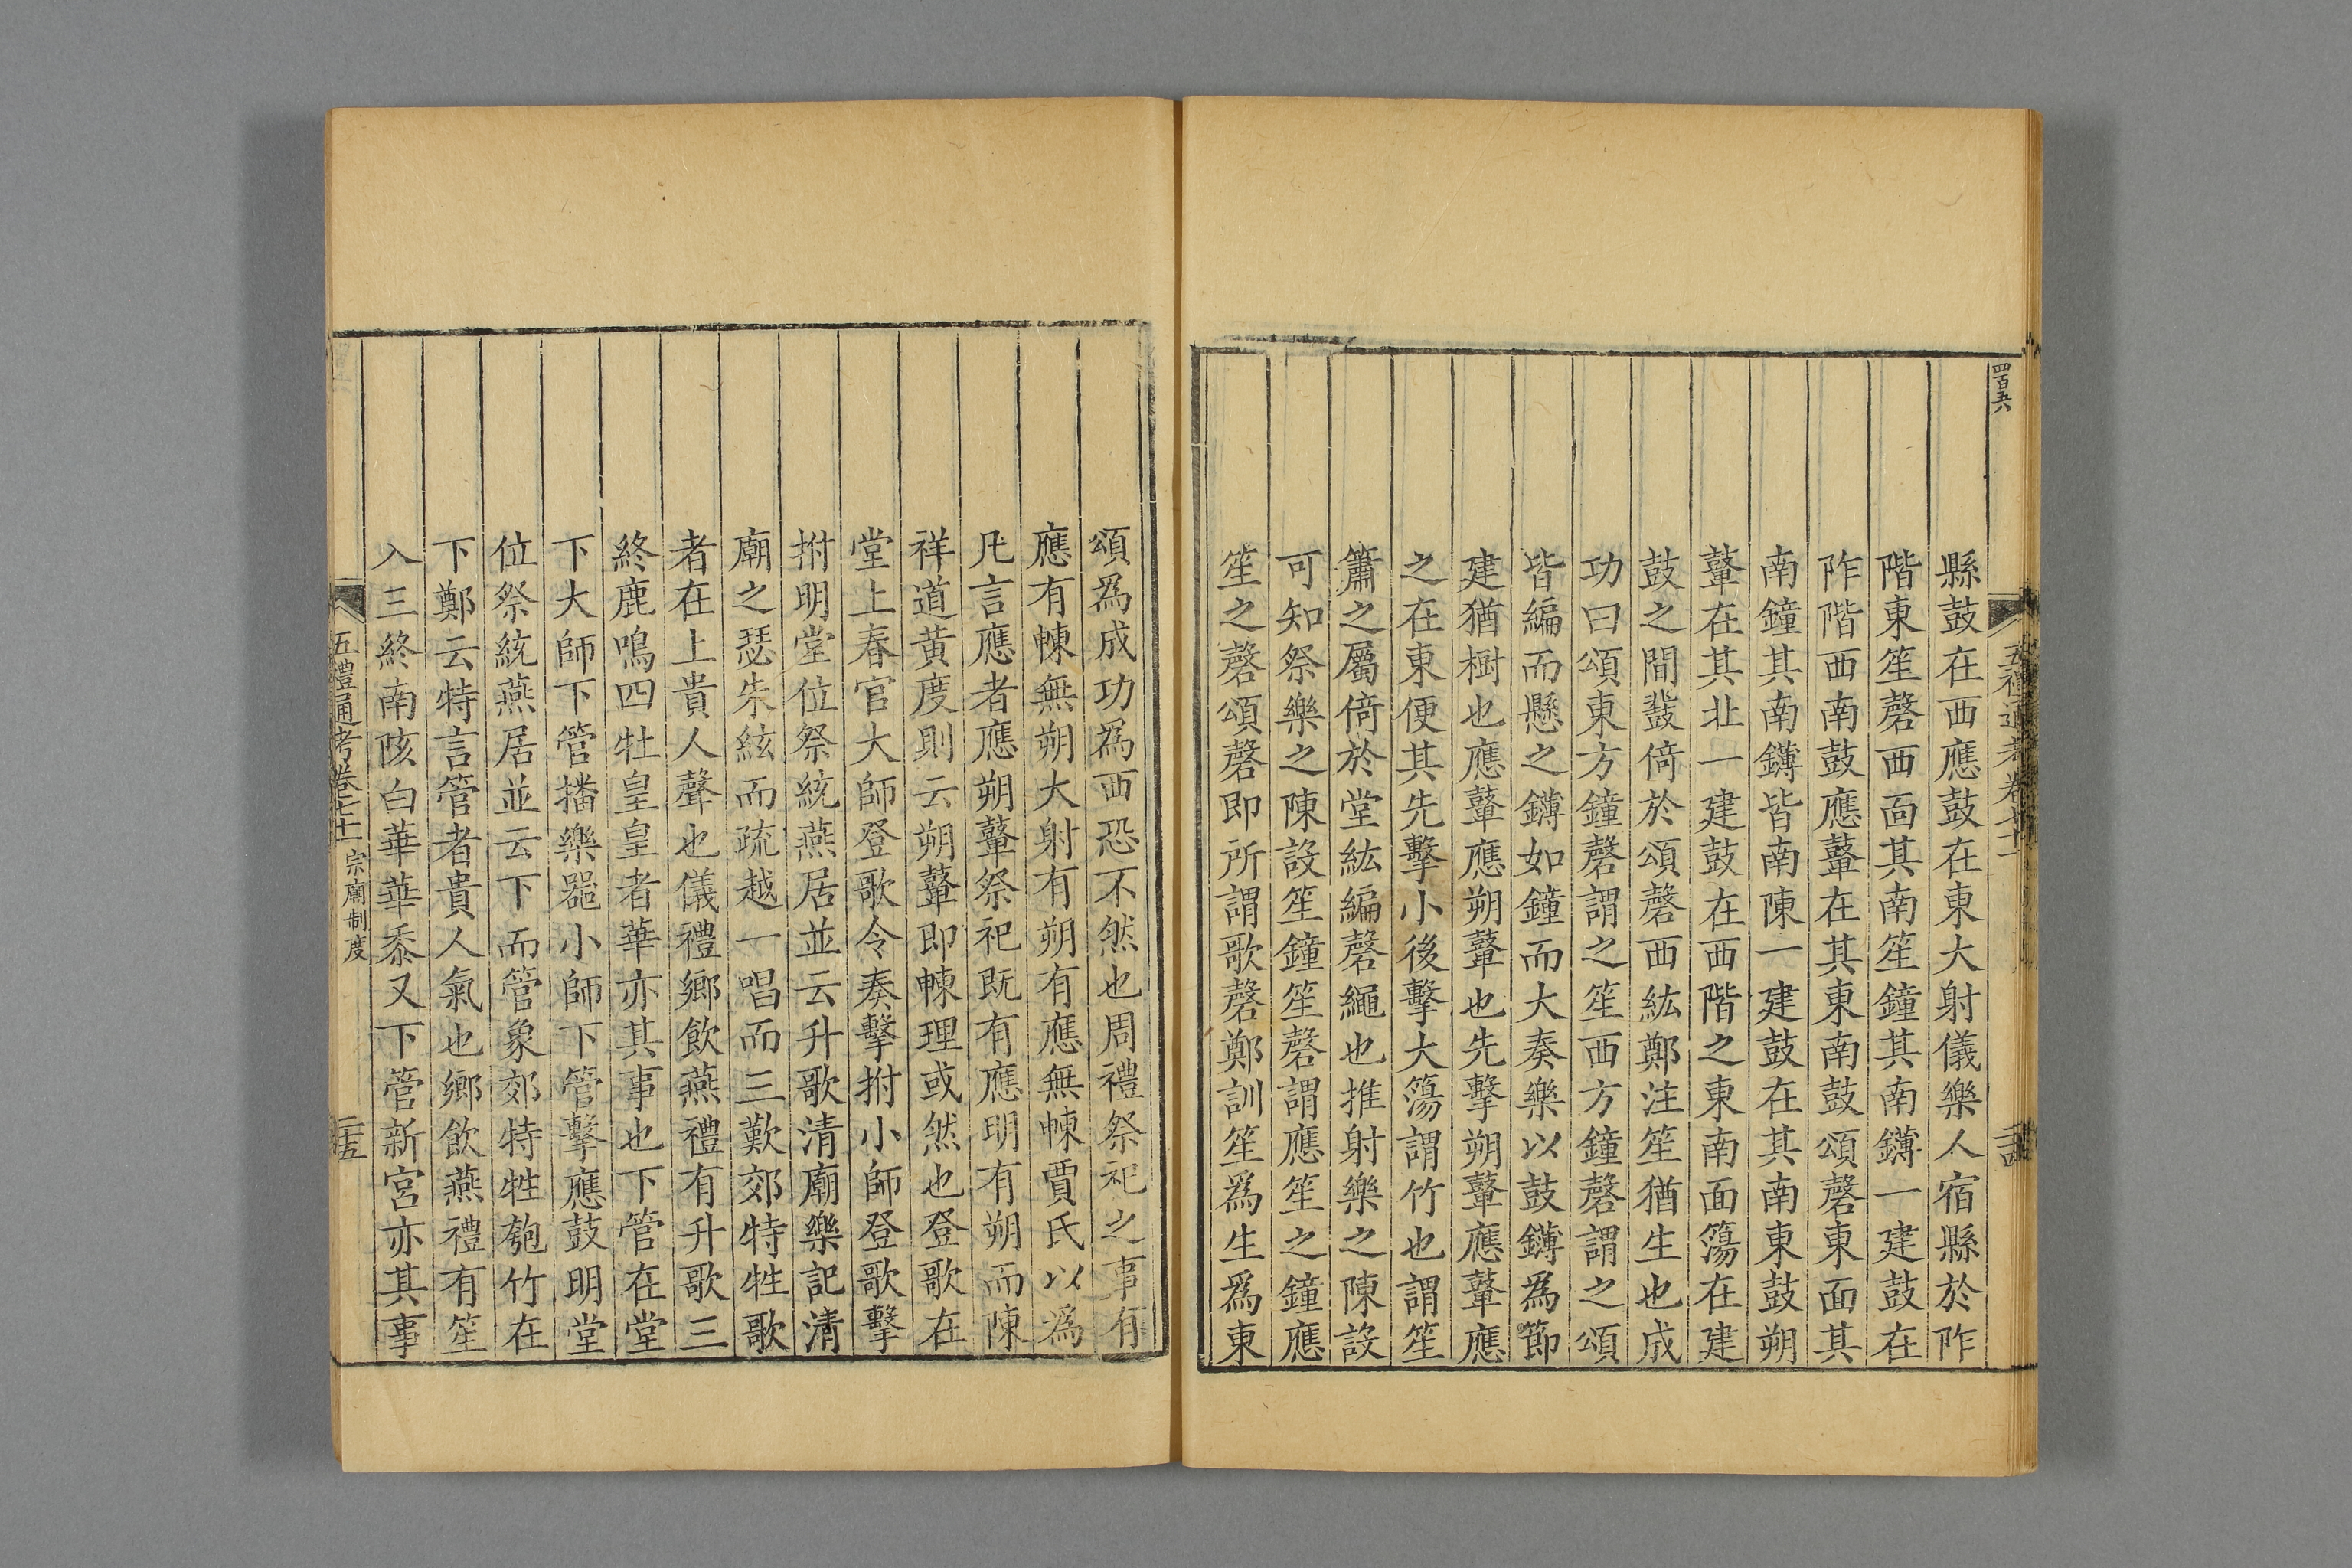 四百五六
五禮通考卷七十一
二十四
縣鼓在西應鼓在東大射儀樂人宿縣於阼
階東笙磬西面其南笙鐘其南鑮一建鼓在
阼階西南鼓應鼙在其東南鼓頌磬東面其
南鐘其南鑮皆南陳一建鼓在其南東鼓朔
鼙在其北一建鼓在西階之東南面簜在建
鼓之間鼗倚於頌磬西紘鄭注笙猶生也成
功曰頌東方鐘磬謂之笙西方鐘磬謂之頌
皆編而懸之鑮如鐘而大奏樂以鼓鑮為節
建猶樹也應鼙應朔鼙也先擊朔鼙應鼙應
之在東便其先擊小後擊大簜謂竹也謂笙
簫之屬倚於堂紘編磬繩也推射樂之陳設
可知祭樂之陳設笙鐘笙磬謂應笙之鐘應
笙之磬頌磬即所謂歌磬鄭訓笙為生為東
頌為成功為西恐不然也周禮祭祀之事有
應有朄無朔大射有朔有應無朄賈氏以為
凡言應者應朔鼙祭祀既有應明有朔而陳
祥道黃度則云朔鼙即朄理或然也登歌在
堂上春官大師登歌令奏擊拊小師登歌擊
拊明堂位祭統燕居並云升歌清廟樂記清
廟之瑟朱絃而疏越一唱而三歎郊特牲歌
者在上貴人聲也儀禮鄉飲燕禮有升歌三
終鹿鳴四牡皇皇者華亦其事也下管在堂
下大師下管播樂器小師下管擊應鼓明堂
位祭統燕居並云下而管象郊特牲匏竹在
下鄭云特言管者貴人氣也鄉飲燕禮有笙
入三終南陔白華華黍又下管新宮亦其事
五禮通考卷七十一 宗廟制度
二十五